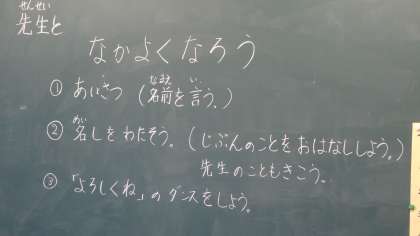 先生と
せんせい
なかよくなろう
① あいさつ (名前を言う。)
なまえ い
② 名しをわたそう。(じぶんのことをおはなししよう。)
めい
先生のこともきこう。
③ 「よろしくね」のダンスをしよう。